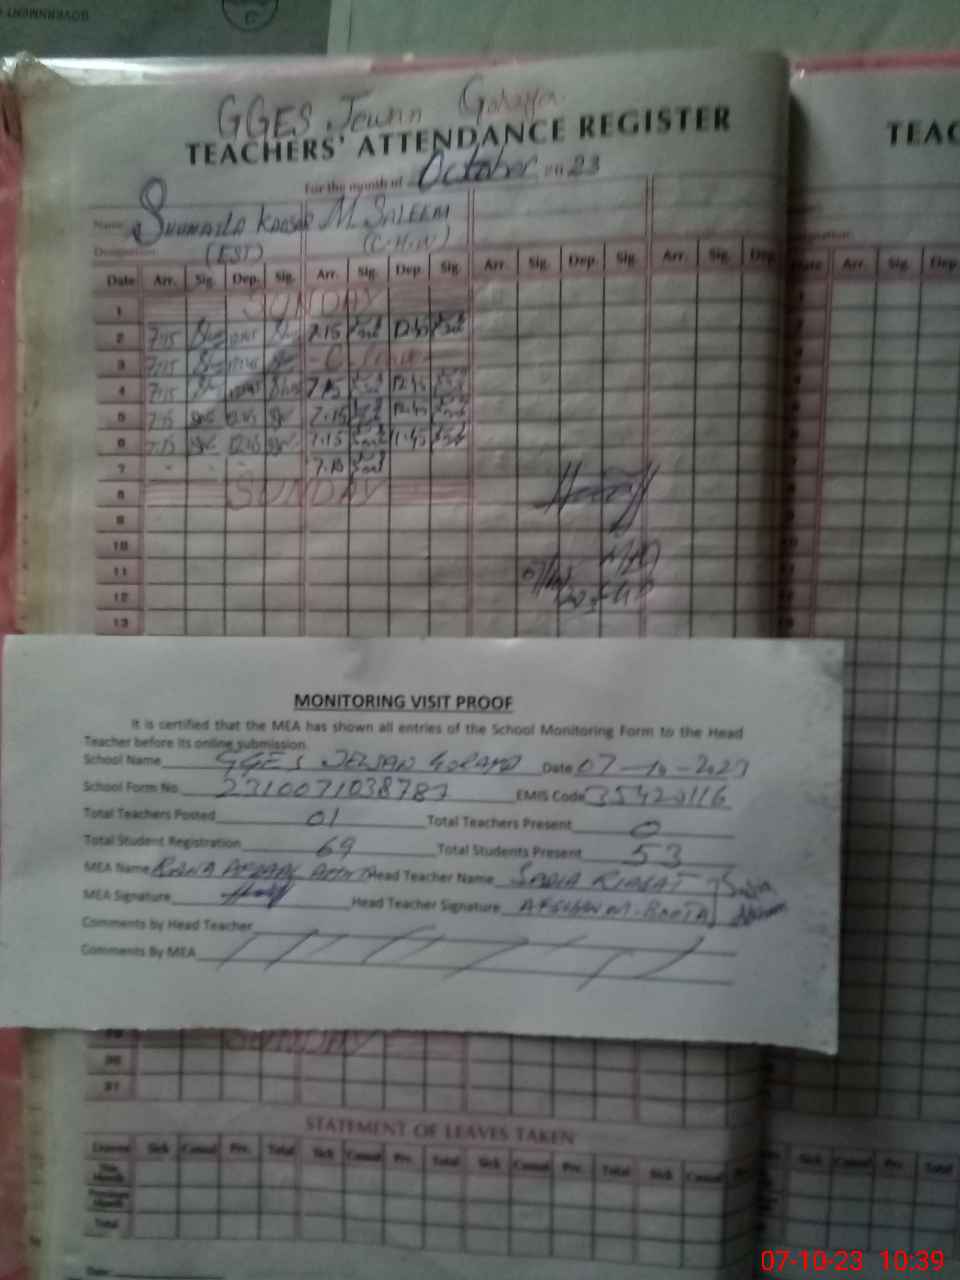 GGES Jewan Goraya
TEACHERS' ATTENDANCE REGISTER
For the month of October 23
TEAC
Name Shumaila Kausar M. SALEEM
(EST) (C.H.W)
Date Arr. Sig. Dep. Sig. Arr. Sig. Dep. Sig. Arr. Sig. Dep. Sig. Arr. Sig. Dep
1 SUNDAY
2 7:15 7.15 12.45
3 7:15 C. leave
4 7:15 7.15 12.45
5 7:15 12:45 7.15 12.45
6 7:15 12:45 7.15 11.45
7 - - - 7.15
8 SUNDAY
9
10
11
12
13
MONITORING VISIT PROOF
It is certified that the MEA has shown all entries of the School Monitoring Form to the Head
Teacher before its online submission.
School Name GGES JEWAN GORAYA Date 07-10-2023
School Form No. 2310071038783 EMIS Code 35420116
Total Teachers Posted 01 Total Teachers Present 0
Total Student Registration 69 Total Students Present 53
MEA Name RANA Head Teacher Name SADIA RIASAT
MEA Signature Head Teacher Signature
Comments by Head Teacher
Comments By MEA
SUNDAY
30
31
STATEMENT OF LEAVES TAKEN
Leaves Sick Casual Prv. Total Sick Casual Prv. Total Sick Casual Prv. Total Sick Casual
This Month
Previous Month
Total
07-10-23 10:39